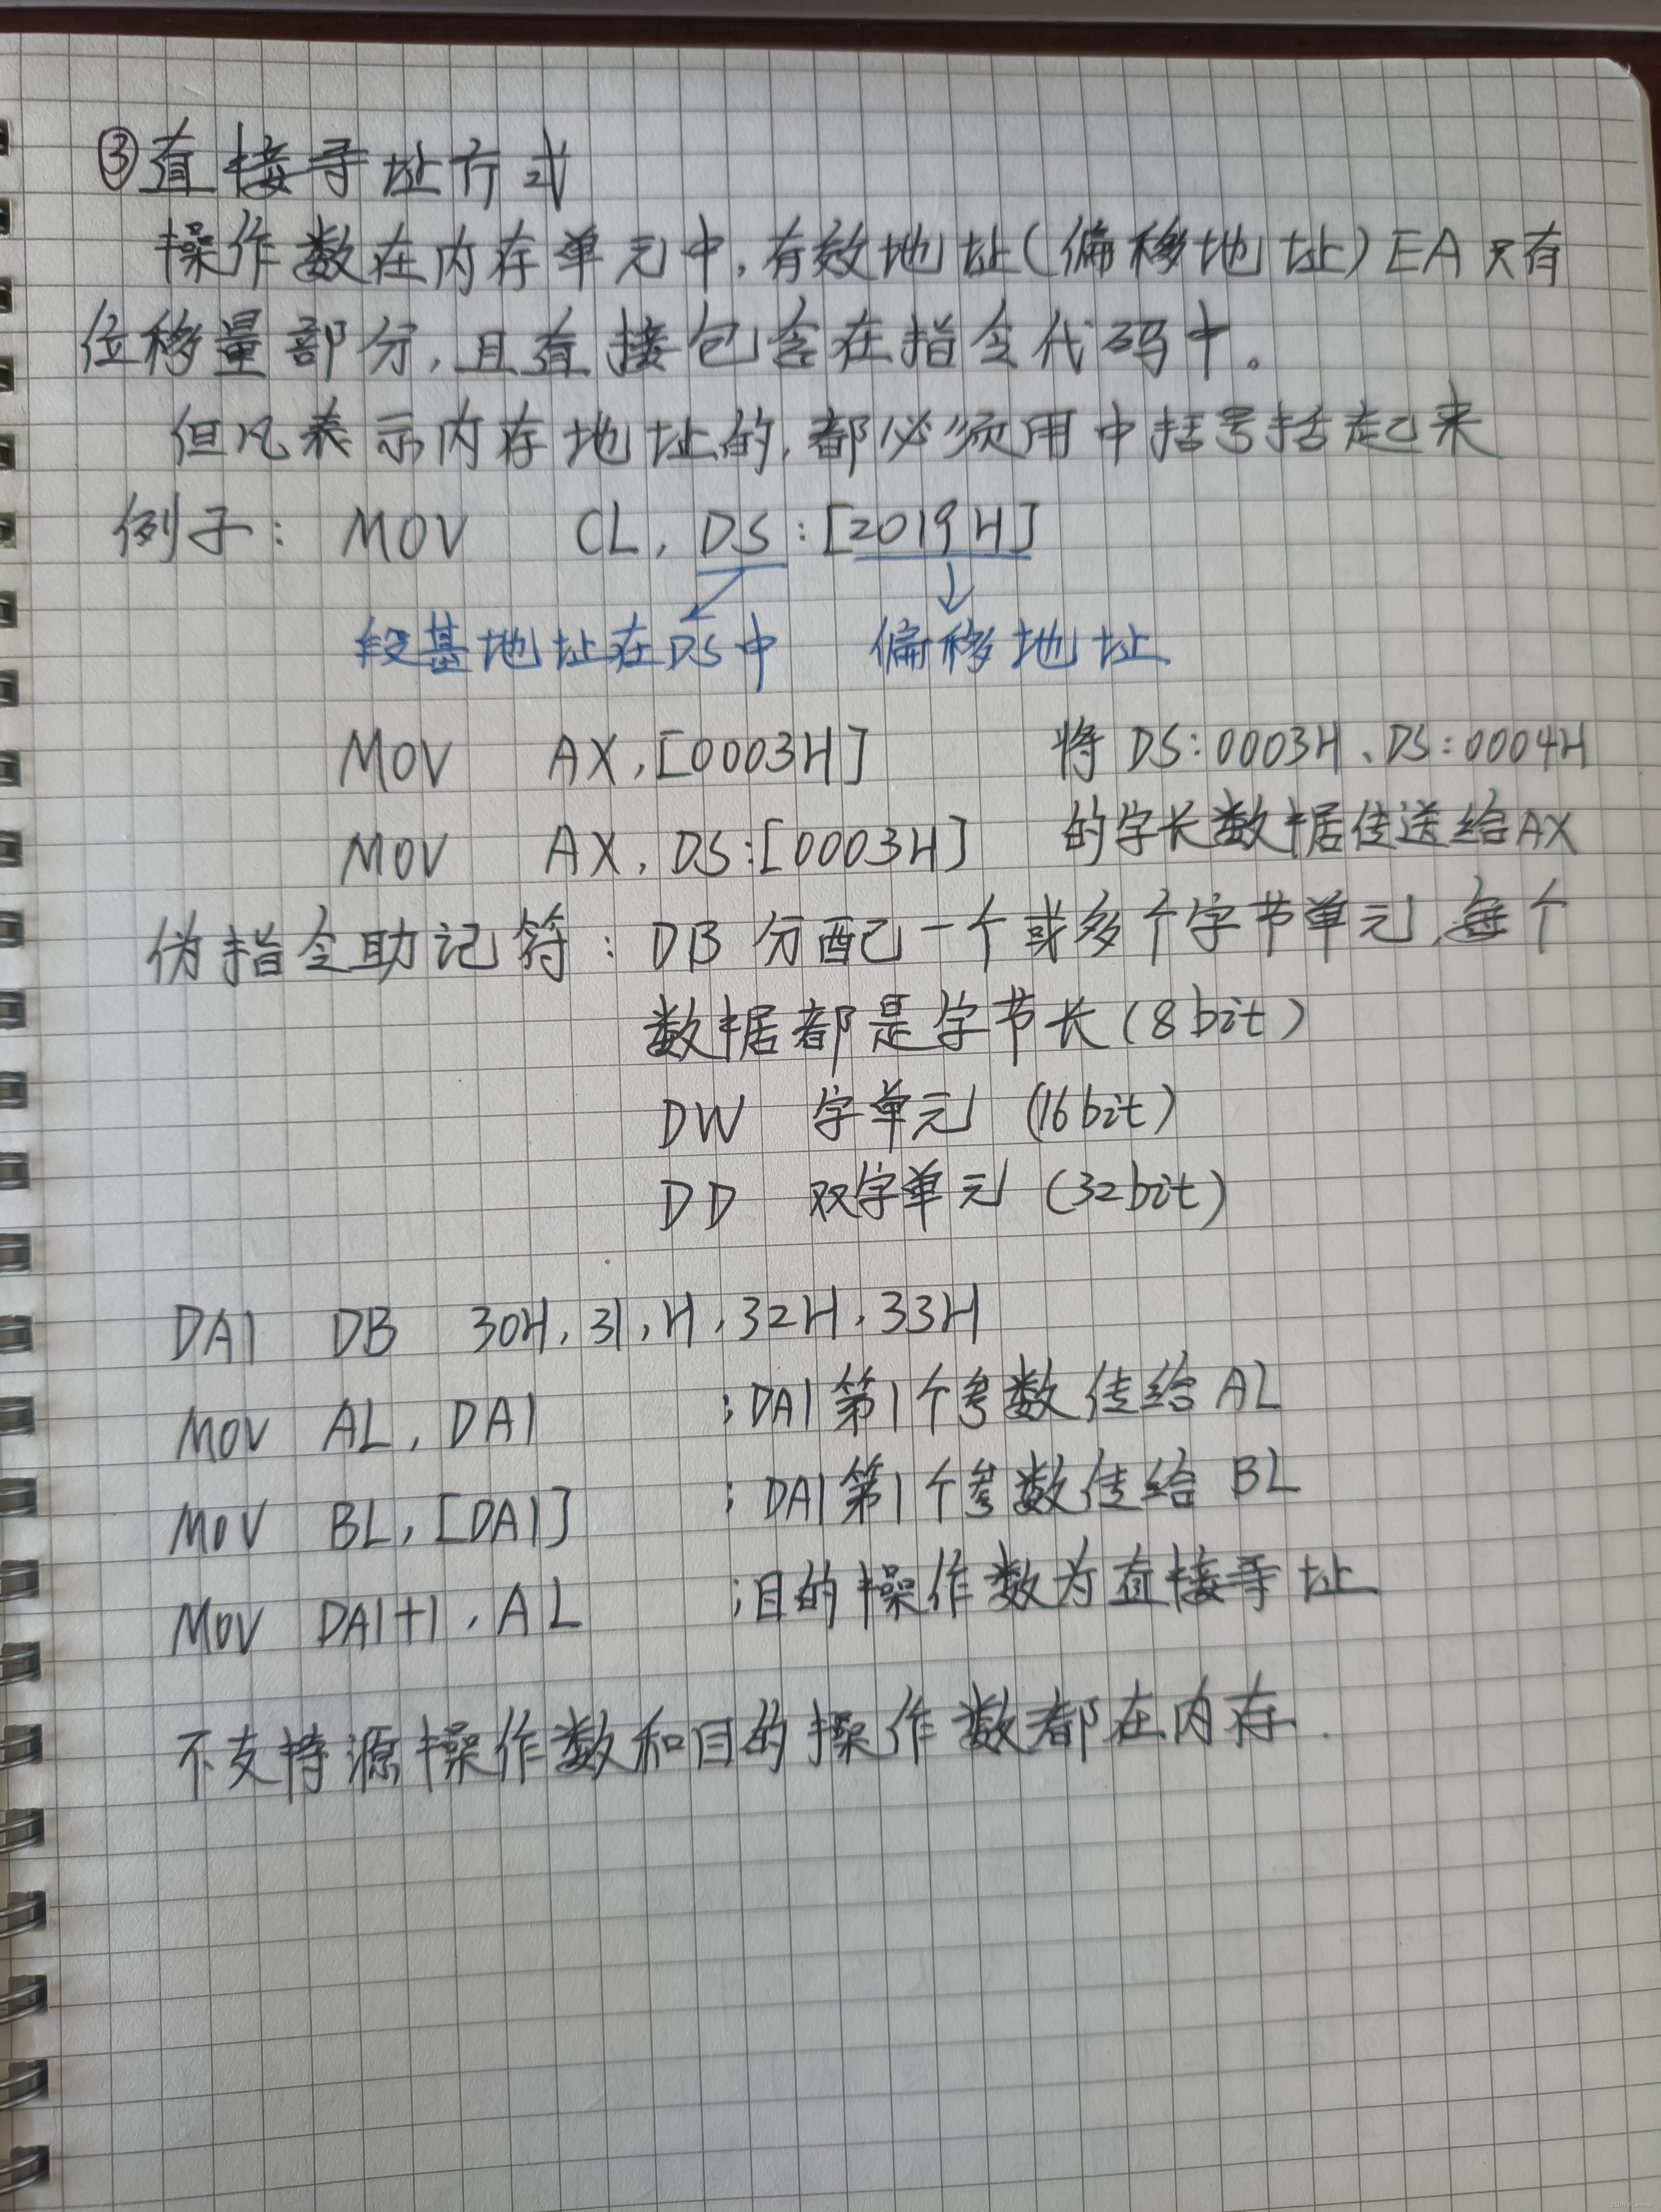 ③直接寻址方式
操作数在内存单元中,有效地址(偏移地址)EA只有
位移量部分,且直接包含在指令代码中。
但凡表示内存地址的,都必须用中括号括起来
例子: MOV CL, DS:[2019H]
段基地址在DS中 偏移地址
MOV AX,[0003H] 将DS:0003H、DS:0004H
MOV AX, DS:[0003H] 的字长数据传送给AX
伪指令助记符: DB 分配一个或多个字节单元,每个
数据都是字节长(8bit)
DW 字单元 (16bit)
DD 双字单元 (32bit)
DA1 DB 30H,31,H,32H,33H
MOV AL, DA1 ;DA1第1个参数传给AL
MOV BL,[DA1] ;DA1第1个参数传给BL
MOV DA1+1, AL ;目的操作数为直接寻址
不支持源操作数和目的操作数都在内存.